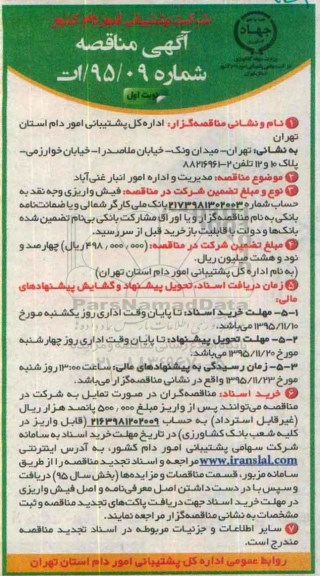 شرکت پشتیبانی امور دام کشور
جهاد
آگهی مناقصه
شماره ۹۵/۰۹/ات
نوبت اول
۱ نام و نشانی مناقصه‌گزار: اداره کل پشتیبانی امور دام استان
تهران
به نشانی: تهران- میدان ونک- خیابان ملاصدرا- خیابان خوارزمی-
پلاک ۱۰ و ۱۲ تلفن ۲-۸۸۲۱۶۹۶۱
۲ موضوع مناقصه: مدیریت و اداره امور انبار غنی‌آباد
۳ نوع و مبلغ تضمین شرکت در مناقصه: فیش واریزی وجه نقد به
حساب شماره ۲۱۷۳۹۸۱۳۰۲۰۰۳ بانک ملی کارگر شمالی و یا ضمانت‌نامه
بانکی به نام مناقصه‌گزار و یا اوراق مشارکت بانکی بی‌نام تضمین شده
بانک‌ها و دولت با قابلیت بازخرید قبل از سررسید.
۴ مبلغ تضمین شرکت در مناقصه: (۴۹۸,۰۰۰,۰۰۰ ریال) چهارصد و
نود و هشت میلیون ریال.
(به نام اداره کل پشتیبانی امور دام استان تهران)
۵ زمان دریافت اسناد، تحویل پیشنهاد و گشایش پیشنهادهای
مالی:
۵-۱- مهلت خرید اسناد: تا پایان وقت اداری روز یکشنبه مورخ
۱۳۹۵/۱۱/۱۰ می‌باشد.
۵-۲- مهلت تحویل پیشنهاد: تا پایان وقت اداری روز چهارشنبه
مورخ ۱۳۹۵/۱۱/۲۰ می‌باشد.
۵-۳- زمان رسیدگی به پیشنهادهای مالی: ساعت ۱۳:۰۰ روز شنبه
مورخ ۱۳۹۵/۱۱/۲۳ واقع در نشانی مناقصه‌گزار می‌باشد.
۶ خرید اسناد: مناقصه‌گران در صورت تمایل به شرکت در
مناقصه می‌توانند پس از واریز مبلغ ۵۰۰,۰۰۰ پانصد هزار ریال
(غیرقابل استرداد) به حساب ۲۱۶۳۹۸۱۲۰۲۰۰۹ (قابل واریز در
کلیه شعب بانک کشاورزی) در تاریخ مهلت خرید اسناد به سامانه
شرکت سهامی پشتیبانی امور دام کشور، به آدرس اینترنتی
www.iranslal.com مراجعه و اسناد تجدید مناقصه را از طریق
سامانه مزبور، قسمت مناقصات و مزایده‌ها (بخش سال ۹۵) دریافت
و سپس با در دست داشتن اصل معرفی‌نامه و اصل فیش واریزی
در مهلت خرید اسناد جهت دریافت پاکت‌های تجدید مناقصه و ثبت
مشخصات به نشانی مناقصه‌گزار مراجعه نمایند.
۷ سایر اطلاعات و جزئیات مربوطه در اسناد تجدید مناقصه
مندرج است.
روابط عمومی اداره کل پشتیبانی امور دام استان تهران